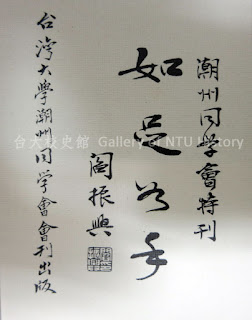 潮州同学會特刊
如足若手
閻振興
台灣大學潮州同学會會刊出版
台大校史館 Gallery of NTU History